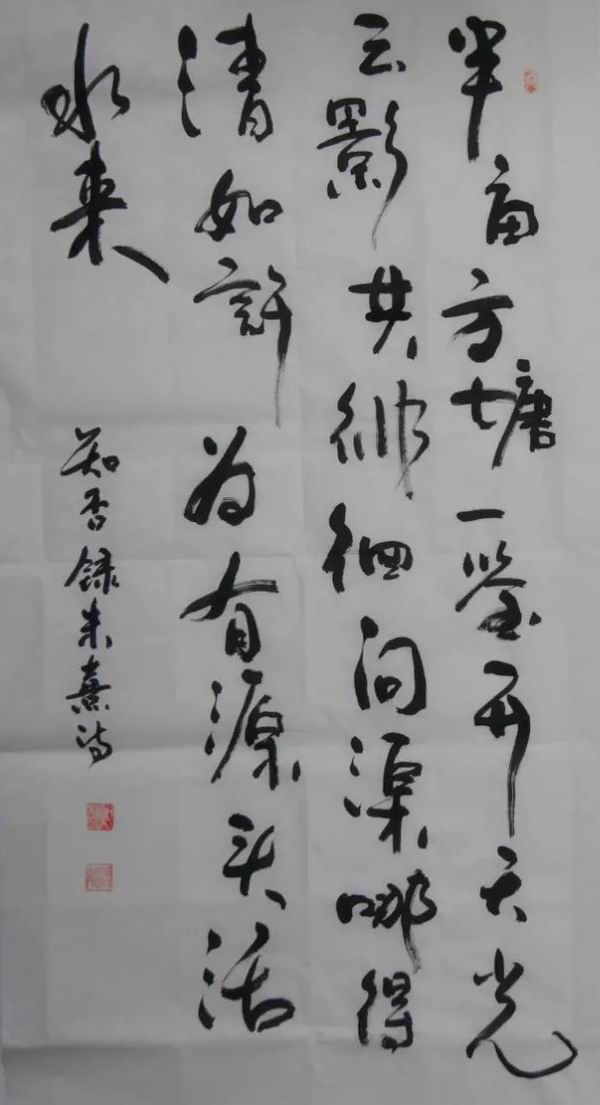 半亩方塘一鉴开天光
云影共徘徊问渠哪得
清如许为有源头活
水来
知否録朱熹诗